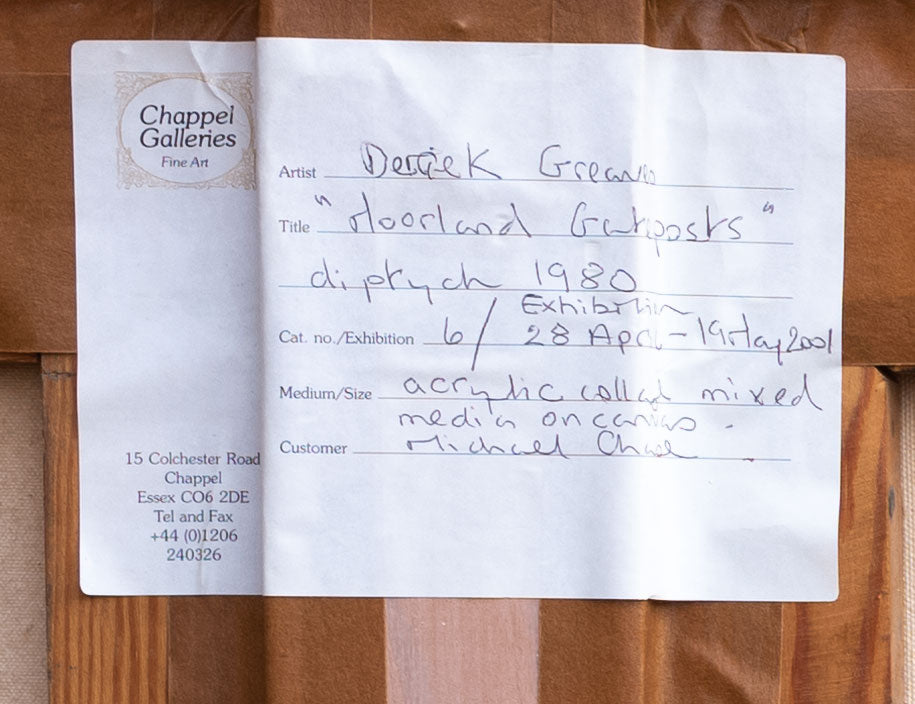 Chappel
Galleries
Fine Art
Artist Derrick Greaves
Title "Moorland Gateposts"
diptych 1980
Exhibition
Cat. no./Exhibition 6/ 28 April - 19 May 2001
Medium/Size acrylic collage mixed
media on canvas.
Customer Michael Chase
15 Colchester Road
Chappel
Essex CO6 2DE
Tel and Fax
+44 (0)1206
240326